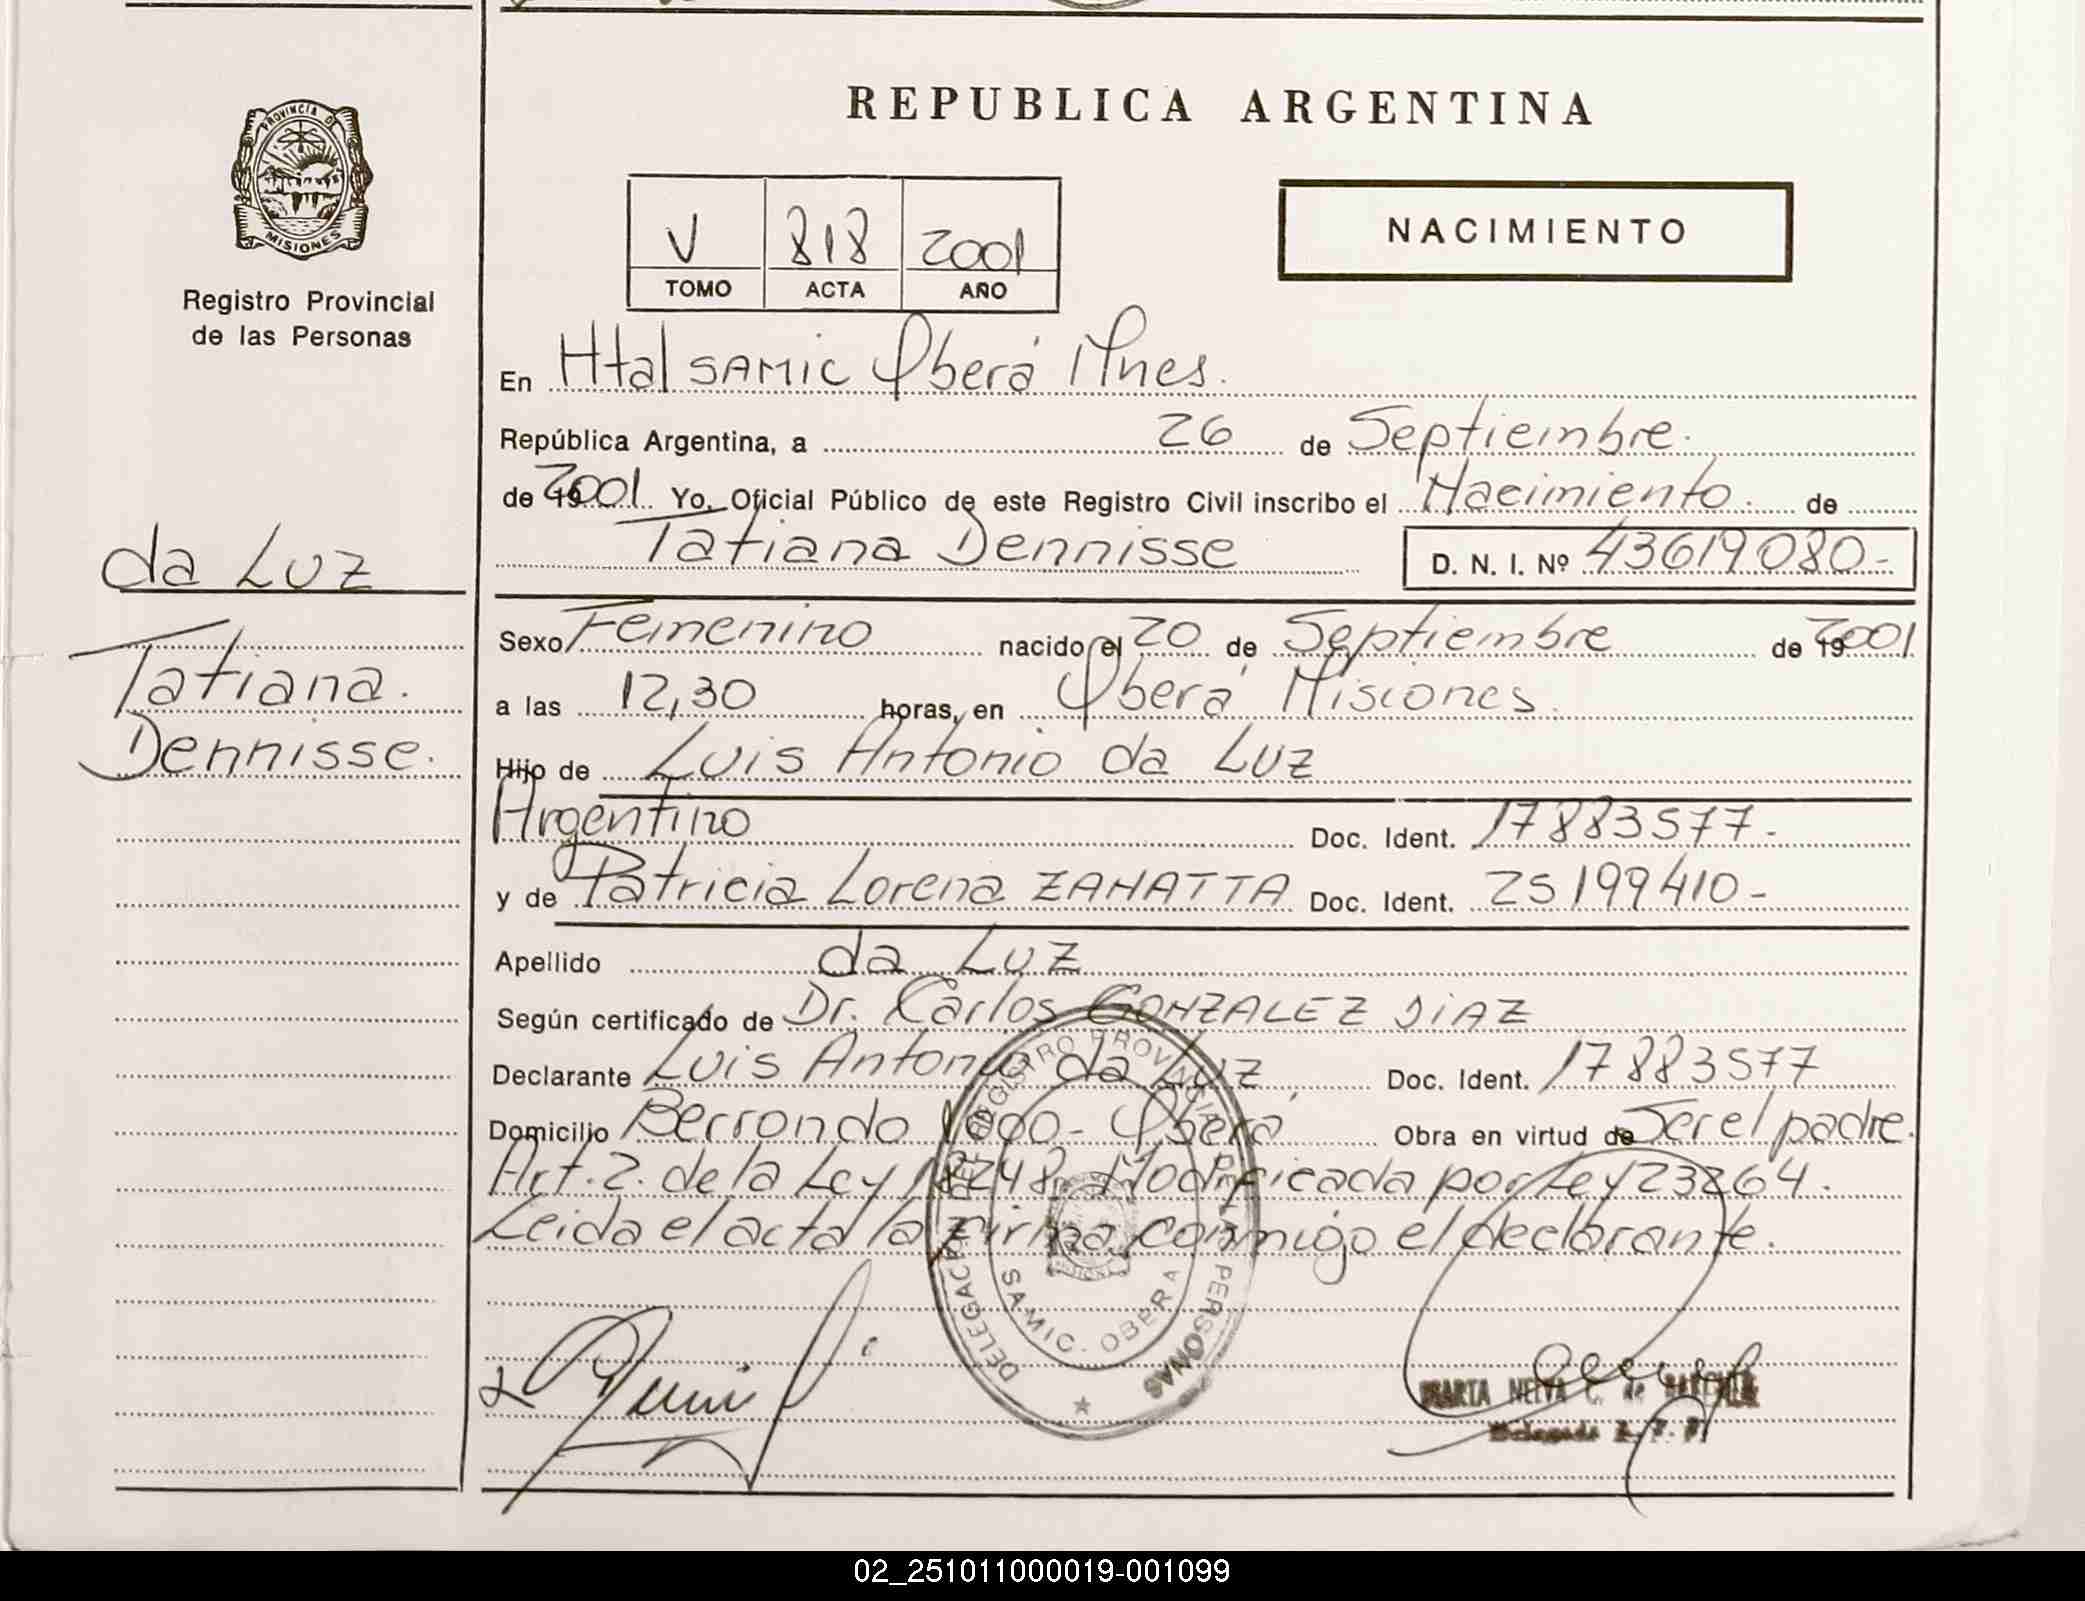 REPUBLICA ARGENTINA
PROVINCIA D
MISIONES
Registro Provincial
de las Personas
V 818 2001
TOMO ACTA AÑO
NACIMIENTO
En Htal SAMIC Oberá Mnes.
República Argentina, a 26 de Septiembre.
de 2001 Yo, Oficial Público de este Registro Civil inscribo el Nacimiento. de
Tatiana Dennisse D. N. I. Nº 43619080-
da Luz
Tatiana.
Dennisse.
Sexo Femenino nacido el 20 de Septiembre de 2001
a las 12,30 horas, en Oberá Misiones.
Hijo de Luis Antonio da Luz
Argentino Doc. Ident. 17883577-
y de Patricia Lorena ZANATTA Doc. Ident. 25199410-
Apellido da Luz
Según certificado de Dr. Carlos GONZALEZ DiAZ
Declarante Luis Antonio da Luz Doc. Ident. 17883577
Domicilio Berrondo 1000- Oberá Obra en virtud de Ser el padre.
Art. 2. de la Ley 18248. Modificada por Ley 23264.
Leida el acta la firma conmigo el declarante.
DELEGACION DEL REGISTRO PROVINCIAL DE LAS PERSONAS
SAMIC. OBERA
MARTA NELVA C. de
02_251011000019-001099